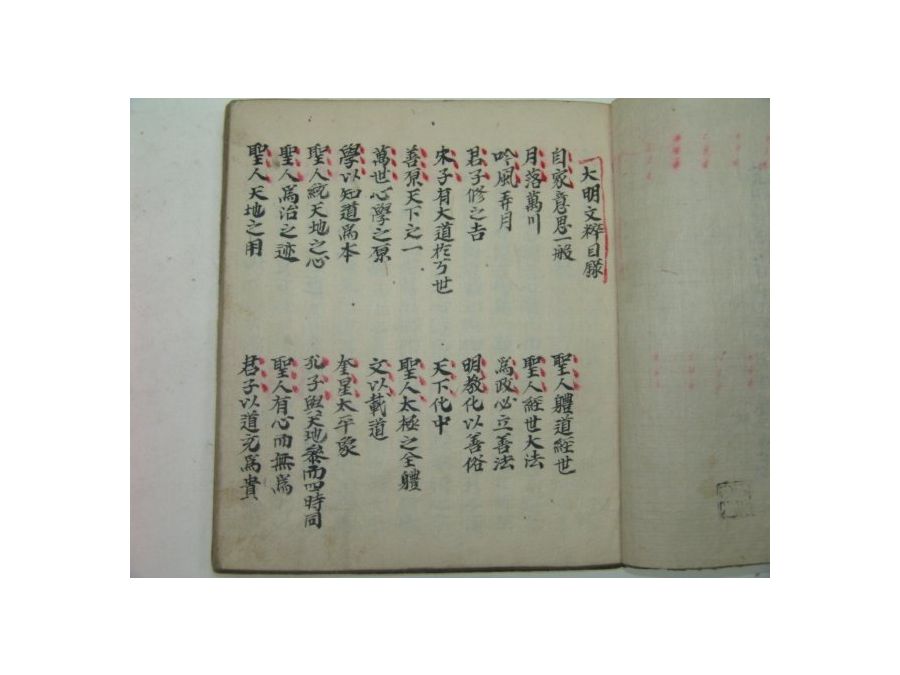 大明文粹目錄
自家意思一般
月落萬川
吟風弄月
君子修之吉
宋子有大道於万世
善原天下之一
萬世心學之原
學以知道爲本
聖人統天地之心
聖人爲治之迹
聖人天地之用
聖人體道經世
聖人經世大法
爲政必立善法
明教化以善俗
天下化中
聖人太極之全體
文以載道
奎星太平象
孔子與天地參而四時同
聖人有心而無爲
君子以道充爲貴